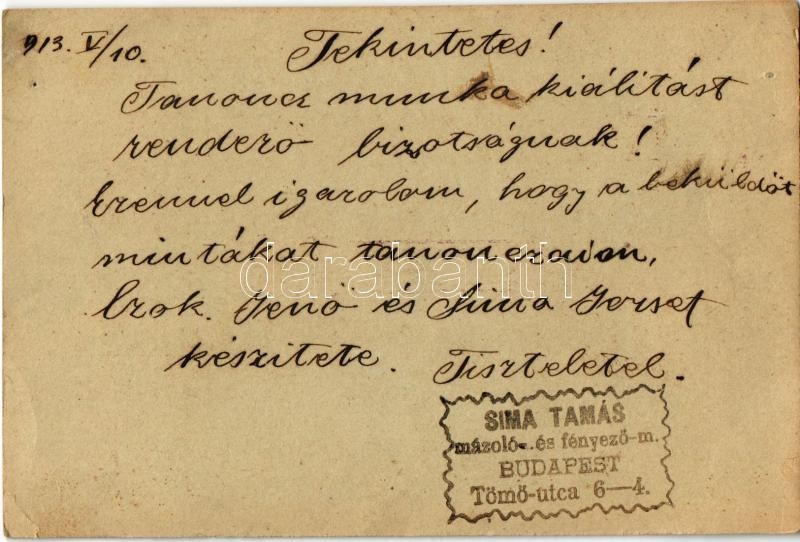 913. V/10. Tekintetes!
Tanoncz munka kiálitást
renderő bizotságnak!
Ezennel igazolom, hogy a beküldöt
mintákat tanonczaim,
Jenő és Sima Jozset
készitete. Tisztelettel.
SIMA TAMÁS
mázoló- és fényező-m.
BUDAPEST
Tömő-utca 6—4.
darabanth